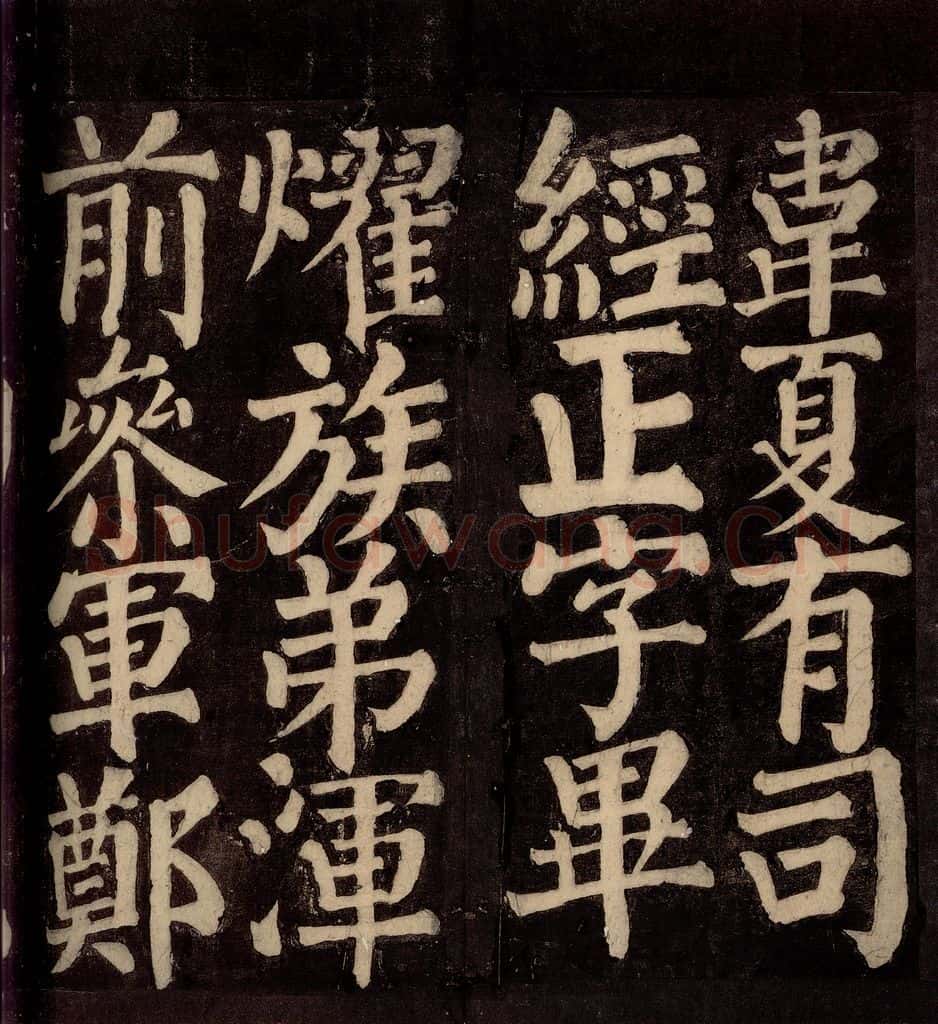 韋夏有司
經正字畢
耀族弟渾
前參軍鄭
Shufawang.CN